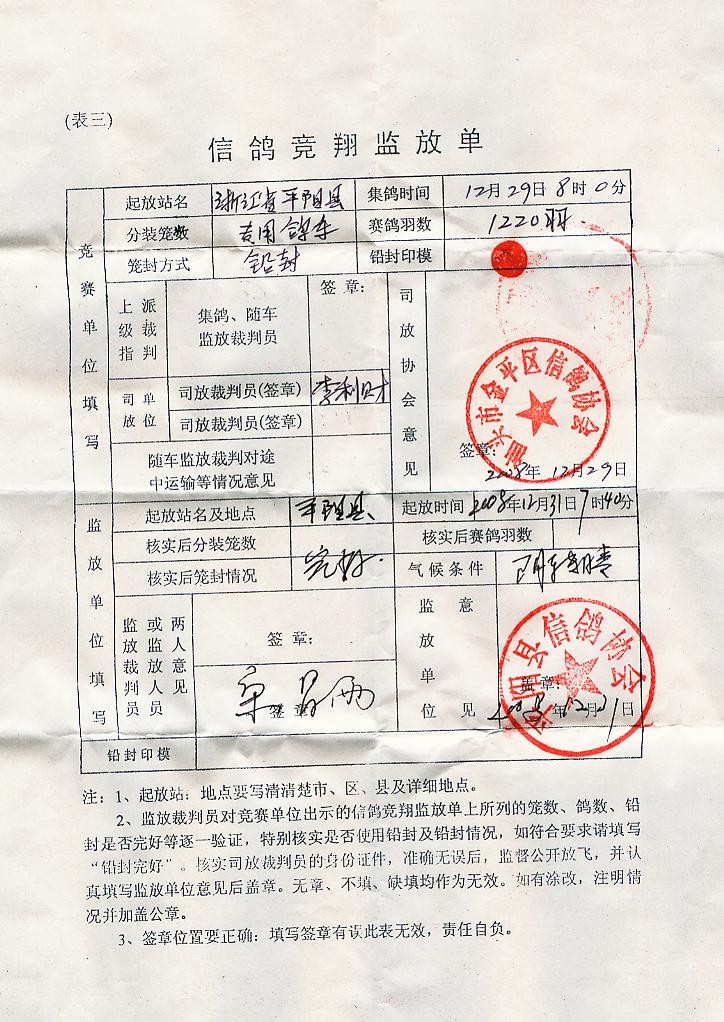 (表三)
信鸽竞翔监放单
竞赛单位填写
起放站名 浙江省平阳县 集鸽时间 12月29日8时0分
分装笼数 专用鸽车 赛鸽羽数 1220羽.
笼封方式 铅封 铅封印模
上级指派裁判
集鸽、随车
监放裁判员
签章:
司放单位
司放裁判员(签章) 李利财
司放裁判员(签章)
随车监放裁判对途
中运输等情况意见
司放协会意见
汕头市金平区信鸽协会
签章:
2008年12月29日
监放单位填写
起放站名及地点 平阳县 起放时间 2008年12月31日7时40分
核实后分装笼数 核实后赛鸽羽数
核实后笼封情况 完好. 气候条件 阴转晴
监放裁判员或监放人员两人意见
签章:
签章:
监放单位意见
平阳县信鸽协会
盖章:
2008年12月31日
铅封印模
注：1、起放站：地点要写清清楚市、区、县及详细地点。
2、监放裁判员对竞赛单位出示的信鸽竞翔监放单上所列的笼数、鸽数、铅
封是否完好等逐一验证，特别核实是否使用铅封及铅封情况，如符合要求请填写
“铅封完好”。核实司放裁判员的身份证件，准确无误后，监督公开放飞，并认
真填写监放单位意见后盖章。无章、不填、缺填均作为无效。如有涂改，注明情
况并加盖公章。
3、签章位置要正确：填写签章有误此表无效，责任自负。